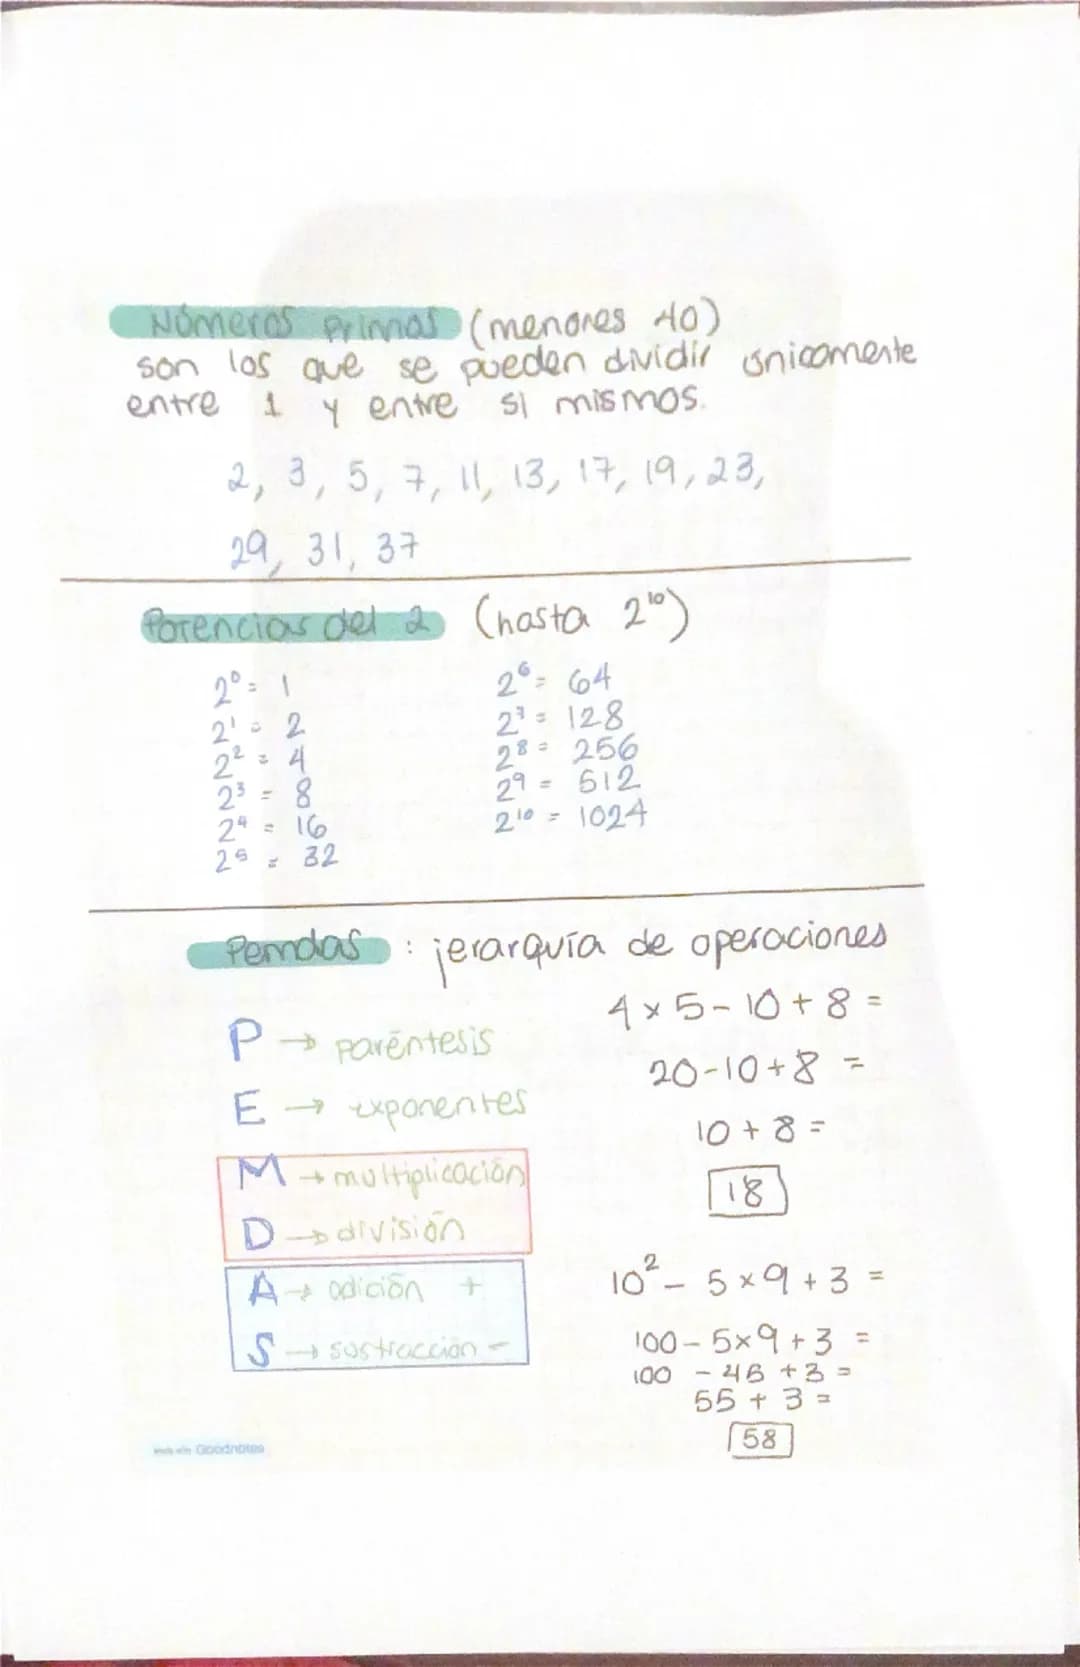 Números Primos (menores 40)
son los que se pueden dividir únicamente
entre 1 y entre si mismos.
2, 3, 5, 7, 11, 13, 17, 19, 23,
29, 31, 37
Potencias del 2 (hasta 2¹⁰)
2⁰ = 1
2¹ = 2
2² = 4
2³ = 8
2⁴ = 16
2⁵ = 32
2⁶ = 64
2⁷ = 128
2⁸ = 256
2⁹ = 512
2¹⁰ = 1024
Pemdas : jerarquía de operaciones
P → paréntesis
E → exponentes
M → multiplicación
D → división
A → adición +
S → sustracción -
4 x 5 - 10 + 8 =
20 - 10 + 8 =
10 + 8 =
18
10² - 5 x 9 + 3 =
100 - 5 x 9 + 3 =
100 - 45 + 3 =
55 + 3 =
58
Goodnotes